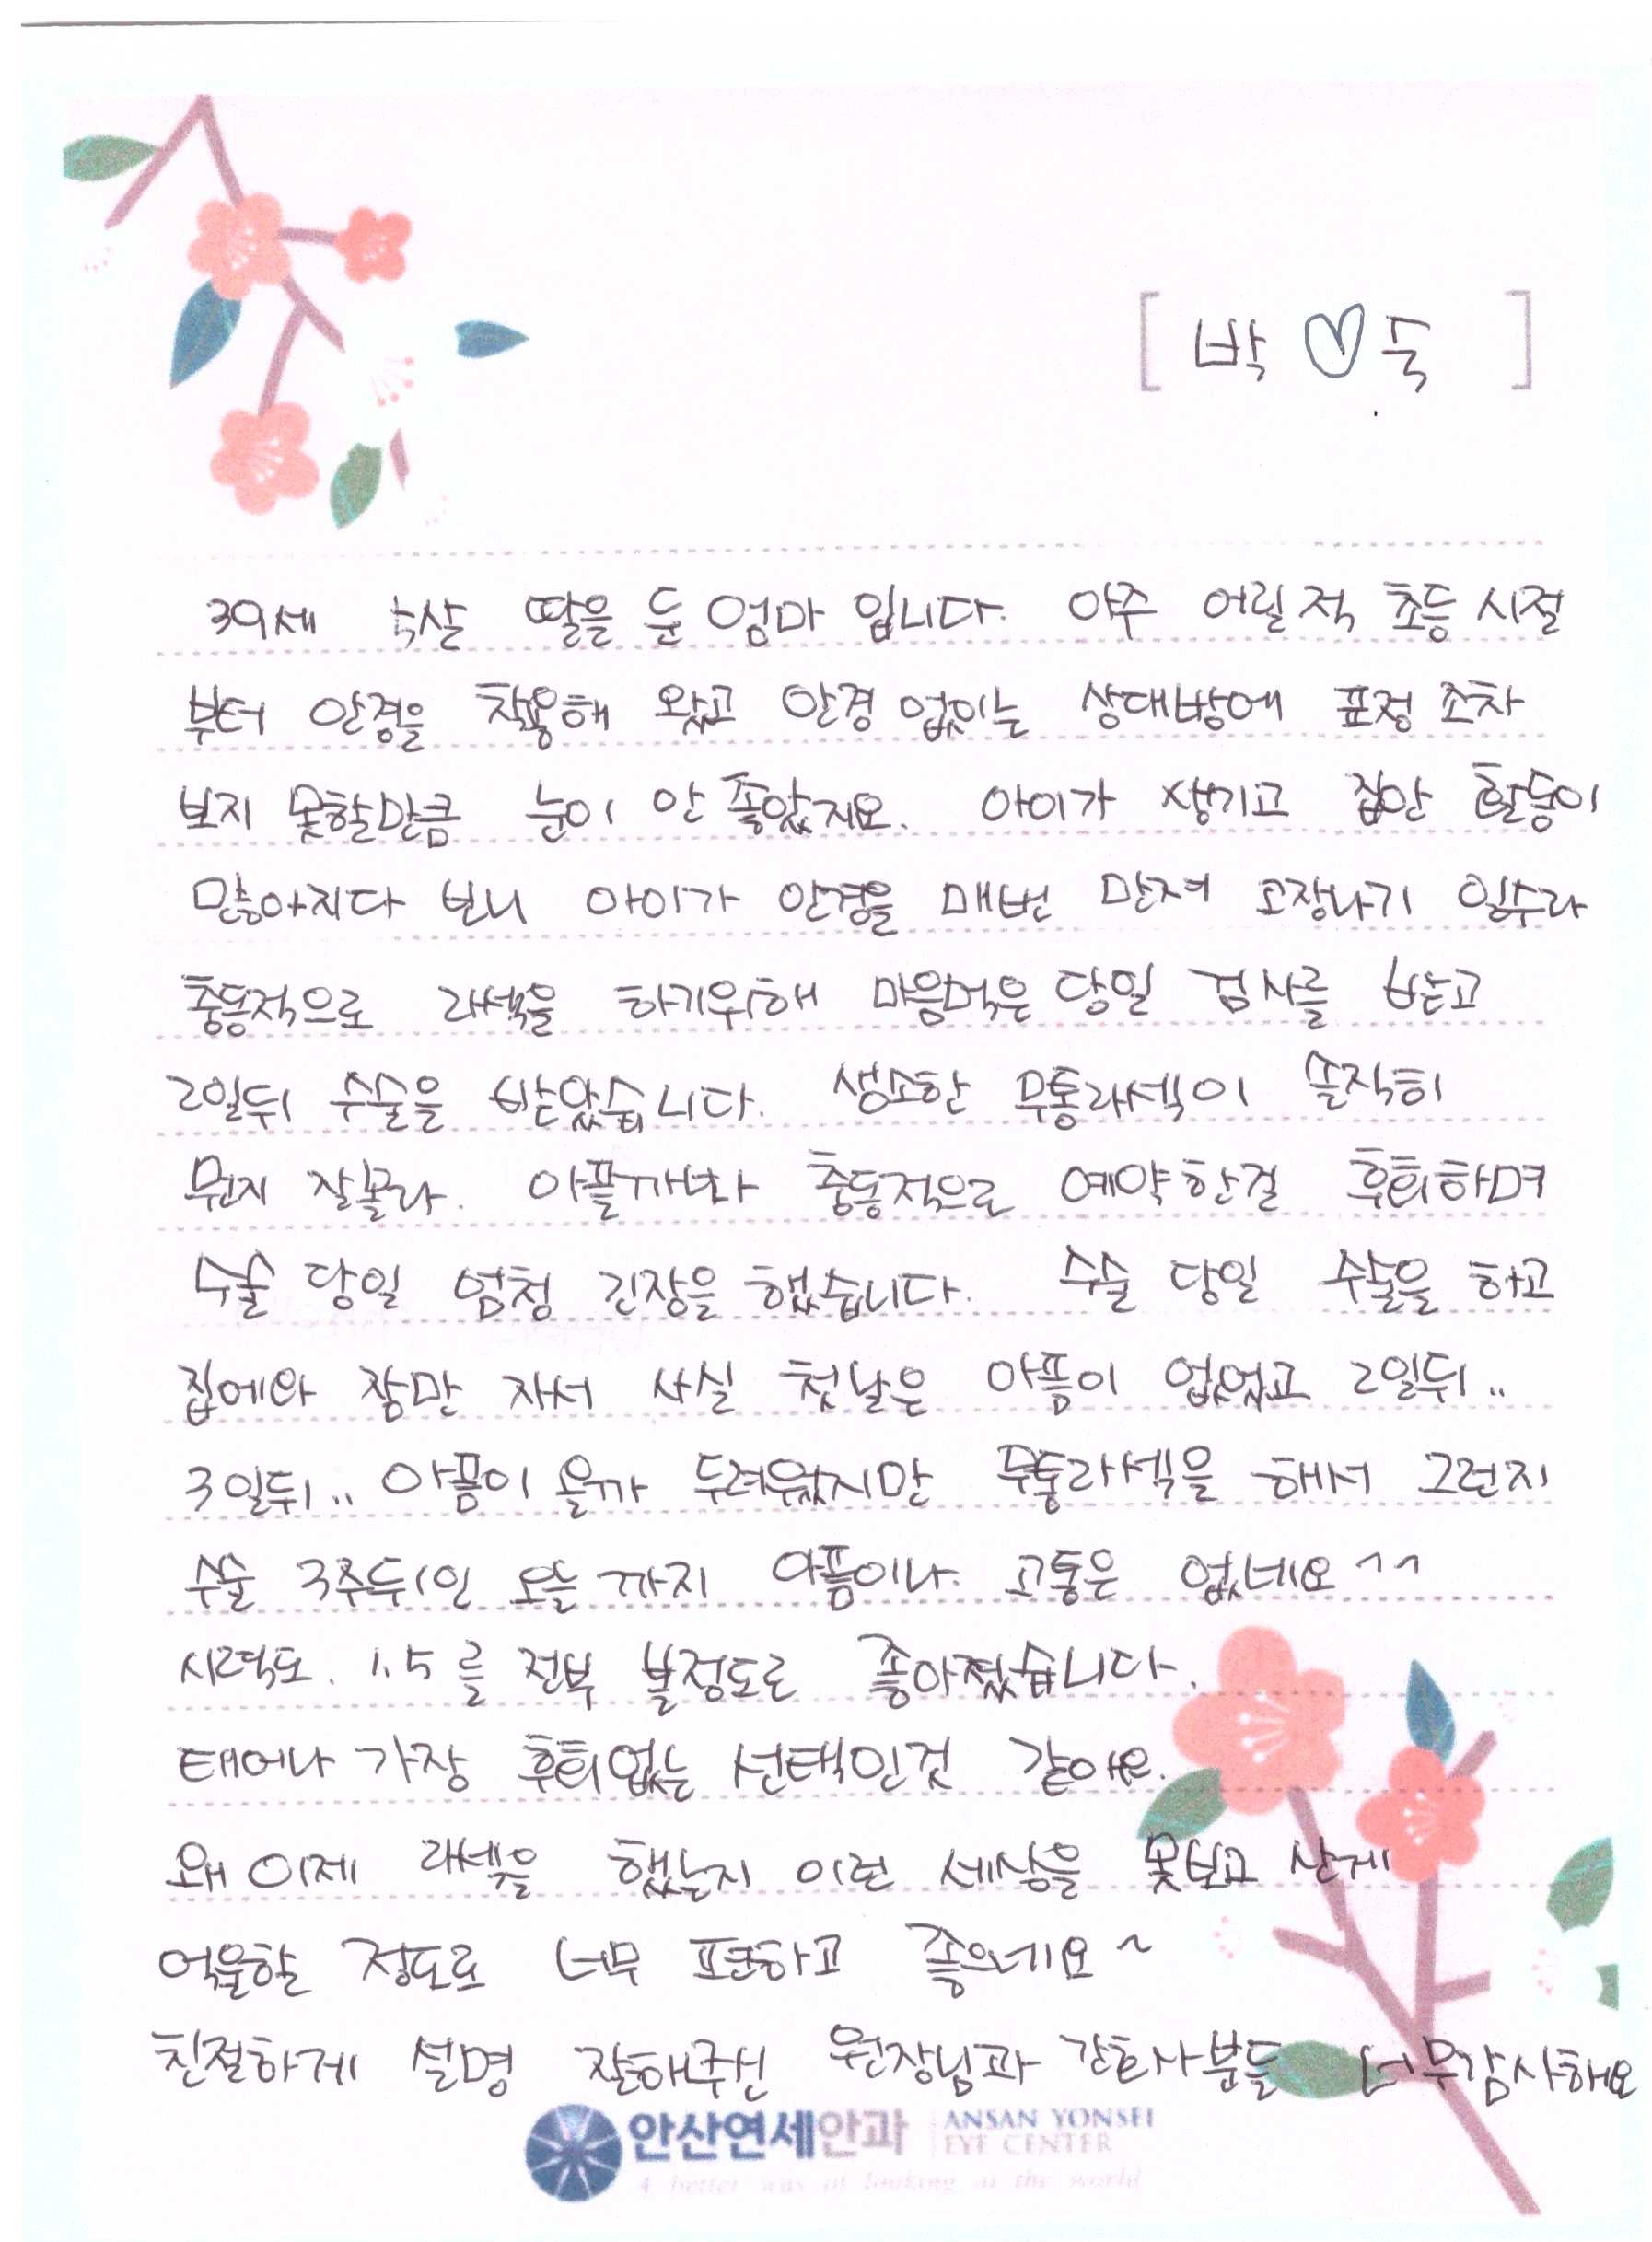 [ 박 ♡ 숙 ]
39세 5살 딸을 둔 엄마 입니다. 아주 어릴적 초등 시절
부터 안경을 착용해 왔고 안경 없이는 상대방에 표정 조차
보지 못할만큼 눈이 안 좋았지요. 아이가 생기고 집안 활동이
많아지다 보니 아이가 안경을 매번 만져 고장나기 일수라
충동적으로 라섹을 하기위해 마음먹은 당일 검사를 받고
2일뒤 수술을 받았습니다. 생소한 무통라섹이 솔직히
뭔지 잘몰라. 아플까봐 충동적으로 예약한걸 후회하며
수술 당일 엄청 긴장을 했습니다. 수술 당일 수술을 하고
집에와 잠만 자서 사실 첫날은 아픔이 없었고 2일뒤..
3일뒤.. 아픔이 올까 두려웠지만 무통라섹을 해서 그런지
수술 3주뒤인 오늘 까지 아픔이나. 고통은 없네요^^
시력도. 1.5를 전부 볼정도로 좋아졌습니다.
태어나 가장 후회없는 선택인것 같아요.
왜 이제 라섹을 했는지 이런 세상을 못보고 산게
억울할 정도로 너무 편하고 좋으네요~
친절하게 설명 잘해주신 원장님과 간호사분들 너무감사해요
안산연세안과 ANSAN YONSEI
EYE CENTER
A better way of looking at the world